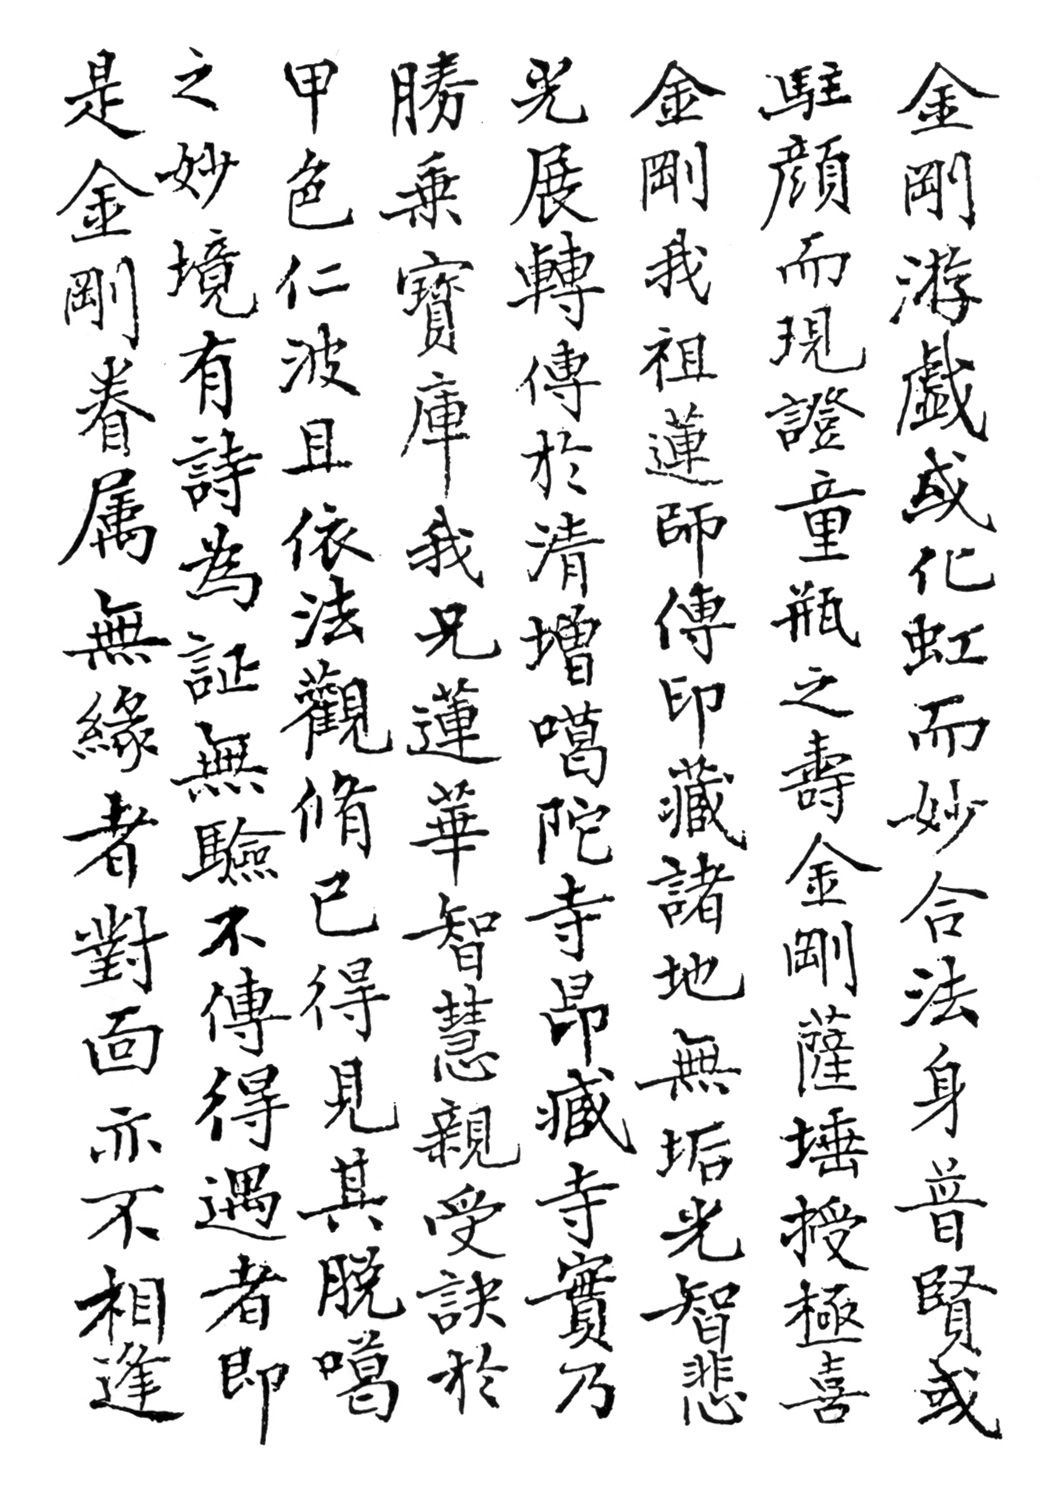 金剛游戲或化虹而妙合法身普賢或
駐顏而現證童瓶之壽金剛薩埵授極喜
金剛我祖蓮師傳印藏諸地無垢光智悲
光展轉傳於清增噶陀寺昂臧寺實乃
勝乘寶庫我兄蓮華智慧親受訣於
甲色仁波且依法觀脩已得見其脫噶
之妙境有詩為証無驗不傳得遇者即
是金剛眷属無緣者對面亦不相逢